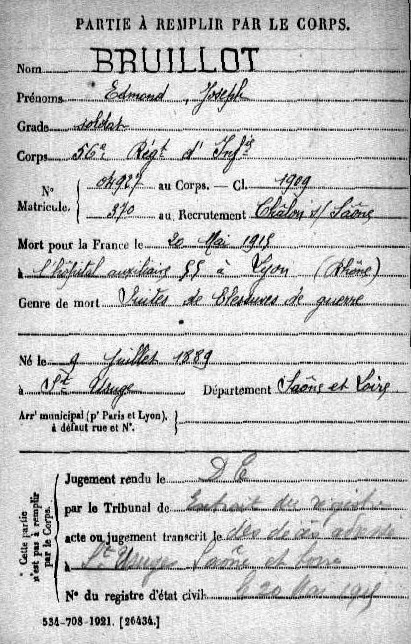 PARTIE À REMPLIR PAR LE CORPS.
Nom BRUILLOT
Prénoms Edmond, Joseph
Grade soldat
Corps 56e Régt d'Infie
N° Matricule. 04927 au Corps. — Cl. 1909
370 au Recrutement Châlon s/ Saône
Mort pour la France le 20 Mai 1915
à l'hôpital auxiliaire 55 à Lyon (Rhône)
Genre de mort Suites de blessures de guerre
Né le 9 Juillet 1889
à St Usuge Département Saône et Loire
Arrt municipal (pr Paris et Lyon), à défaut rue et N°.
Cette partie n'est pas à remplir par le Corps.
Jugement rendu le
par le Tribunal de Extrait du registre
acte ou jugement transcrit le des décès adressé
à St Usuge Saône et Loire
N° du registre d'état civil le 20 Mai 1915
534-708-1921. [26434.]